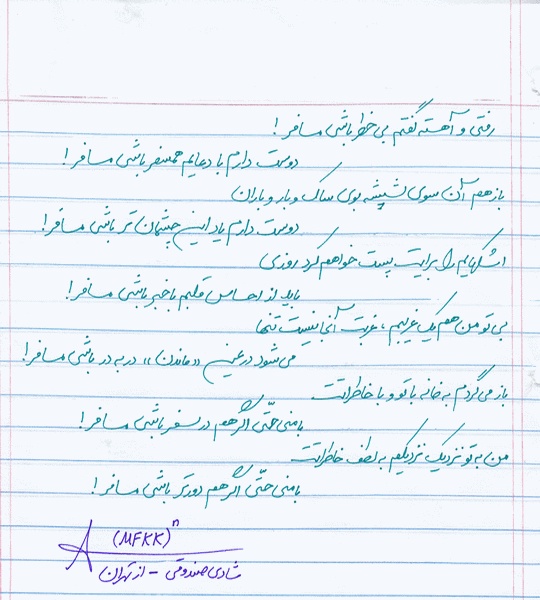 رفتی و آهسته گفتم بی خطر باشی مسافر!
دوست دارم با دعایم همسفر باشی مسافر!
باز هم آن سوی شیشه بوی ساک و بار و باران
دوست دارم یاد این چشمان تر باشی مسافر!
اشکهایم را برایت پست خواهم کرد روزی
باید از احساس قلبم باخبر باشی مسافر!
بی تو من هم یک غریبم، غربت آنجا نیست تنها
می شود در عین «ماندن» دربه در باشی مسافر!
باز می گردم به خانه با تو و با خاطراتت
با منی حتّی اگر هم در سفر باشی مسافر!
من به تو نزدیک نزدیکم به لطف خاطراتت
با منی حتّی اگر هم دورتر باشی مسافر!
(MFKK)ⁿ
شادی صندوقی - از تهران